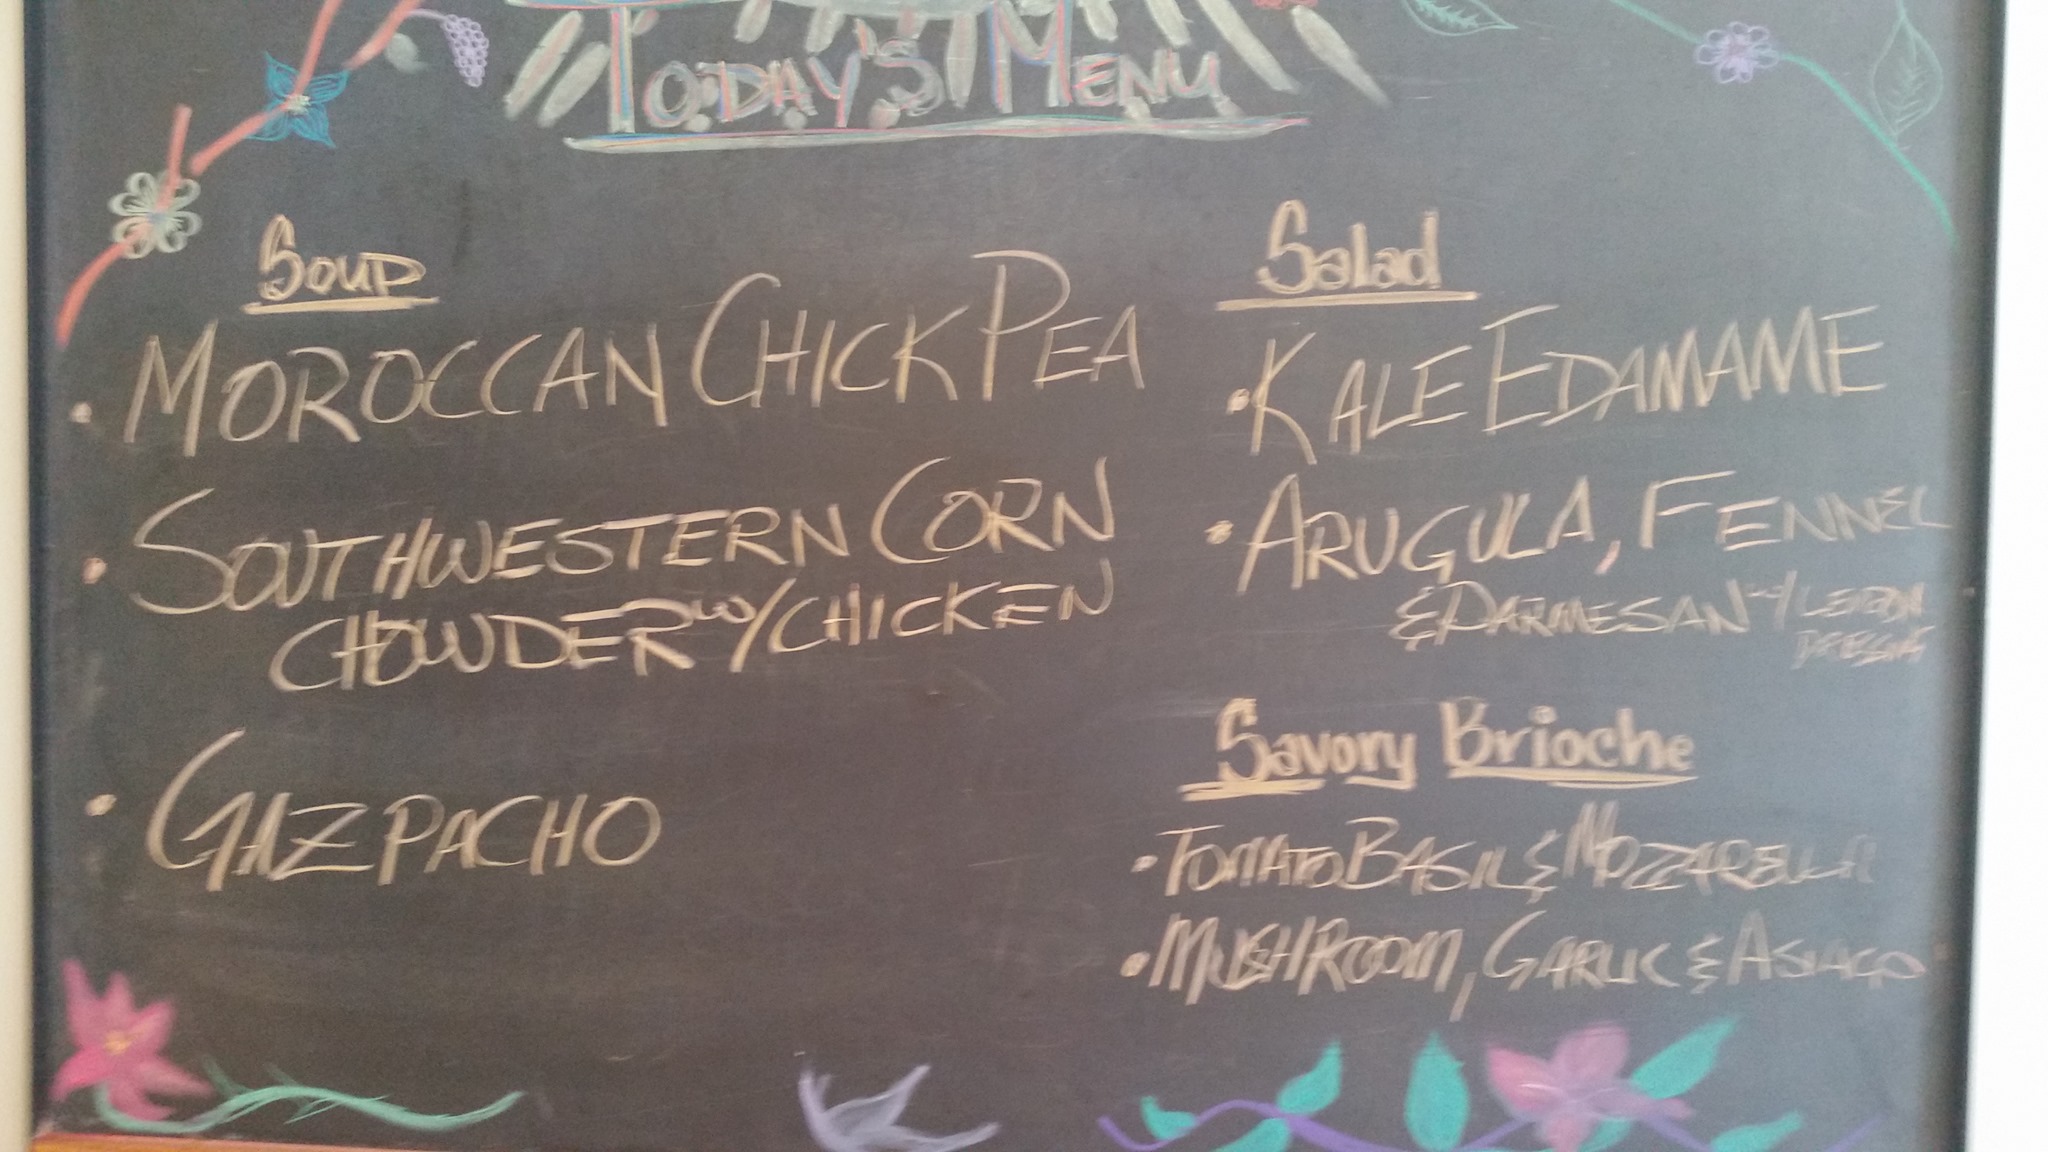 TODAY'S MENU
Soup
• MOROCCAN CHICK PEA
• SOUTHWESTERN CORN
CHOWDER w/CHICKEN
• GAZPACHO
Salad
• KALE EDAMAME
• ARUGULA, FENNEL
& PARMESAN w/ LEMON
DRESSING
Savory Brioche
• TOMATO BASIL & MOZZARELLA
• MUSHROOM, GARLIC & ASIAGO